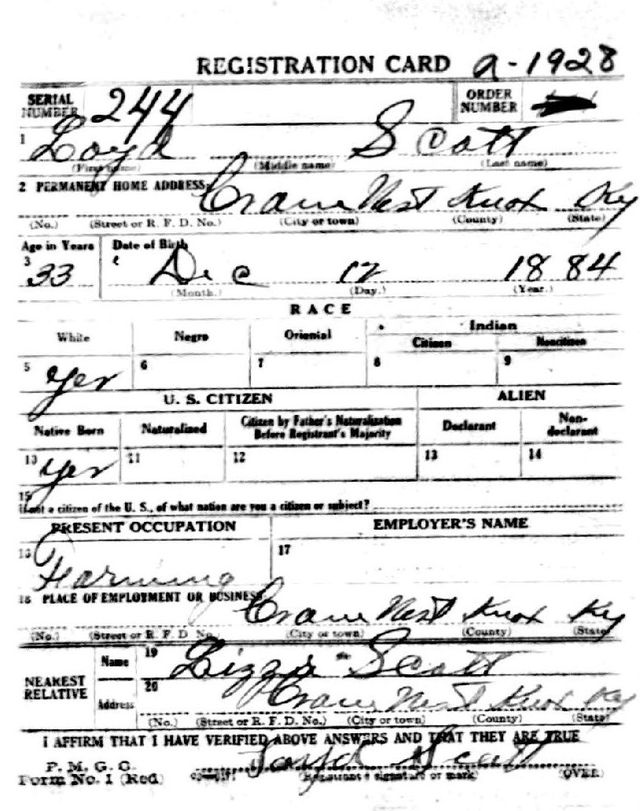 REGISTRATION CARD a-1928
SERIAL NUMBER 244 ORDER NUMBER
1 Loyd Scott
(First name) (Middle name) (Last name)
2 PERMANENT HOME ADDRESS: Crane Nest Knox Ky
(No.) (Street or R. F. D. No.) (City or town) (County) (State)
Age in Years Date of Birth
3 33 4 Dec 12 1884
(Month.) (Day.) (Year.)
RACE
White Negro Oriental Indian
Citizen Noncitizen
5 Yes 6 7 8 9
U. S. CITIZEN ALIEN
Native Born Naturalized Citizen by Father's Naturalization Before Registrant's Majority Declarant Non-declarant
10 Yes 11 12 13 14
15
If not a citizen of the U. S., of what nation are you a citizen or subject?
PRESENT OCCUPATION EMPLOYER'S NAME
16 Farming 17
18 PLACE OF EMPLOYMENT OR BUSINESS: Crane Nest Knox Ky
(No.) (Street or R. F. D. No.) (City or town) (County) (State)
NEAREST RELATIVE Name 19 Lizzie Scott
Address 20 Crane Nest Knox Ky
(No.) (Street or R. F. D. No.) (City or town) (County) (State)
I AFFIRM THAT I HAVE VERIFIED ABOVE ANSWERS AND THAT THEY ARE TRUE
P. M. G. O.
Form No. 1 (Red) Loyd Scott
(Registrant's signature or mark) (OVER)